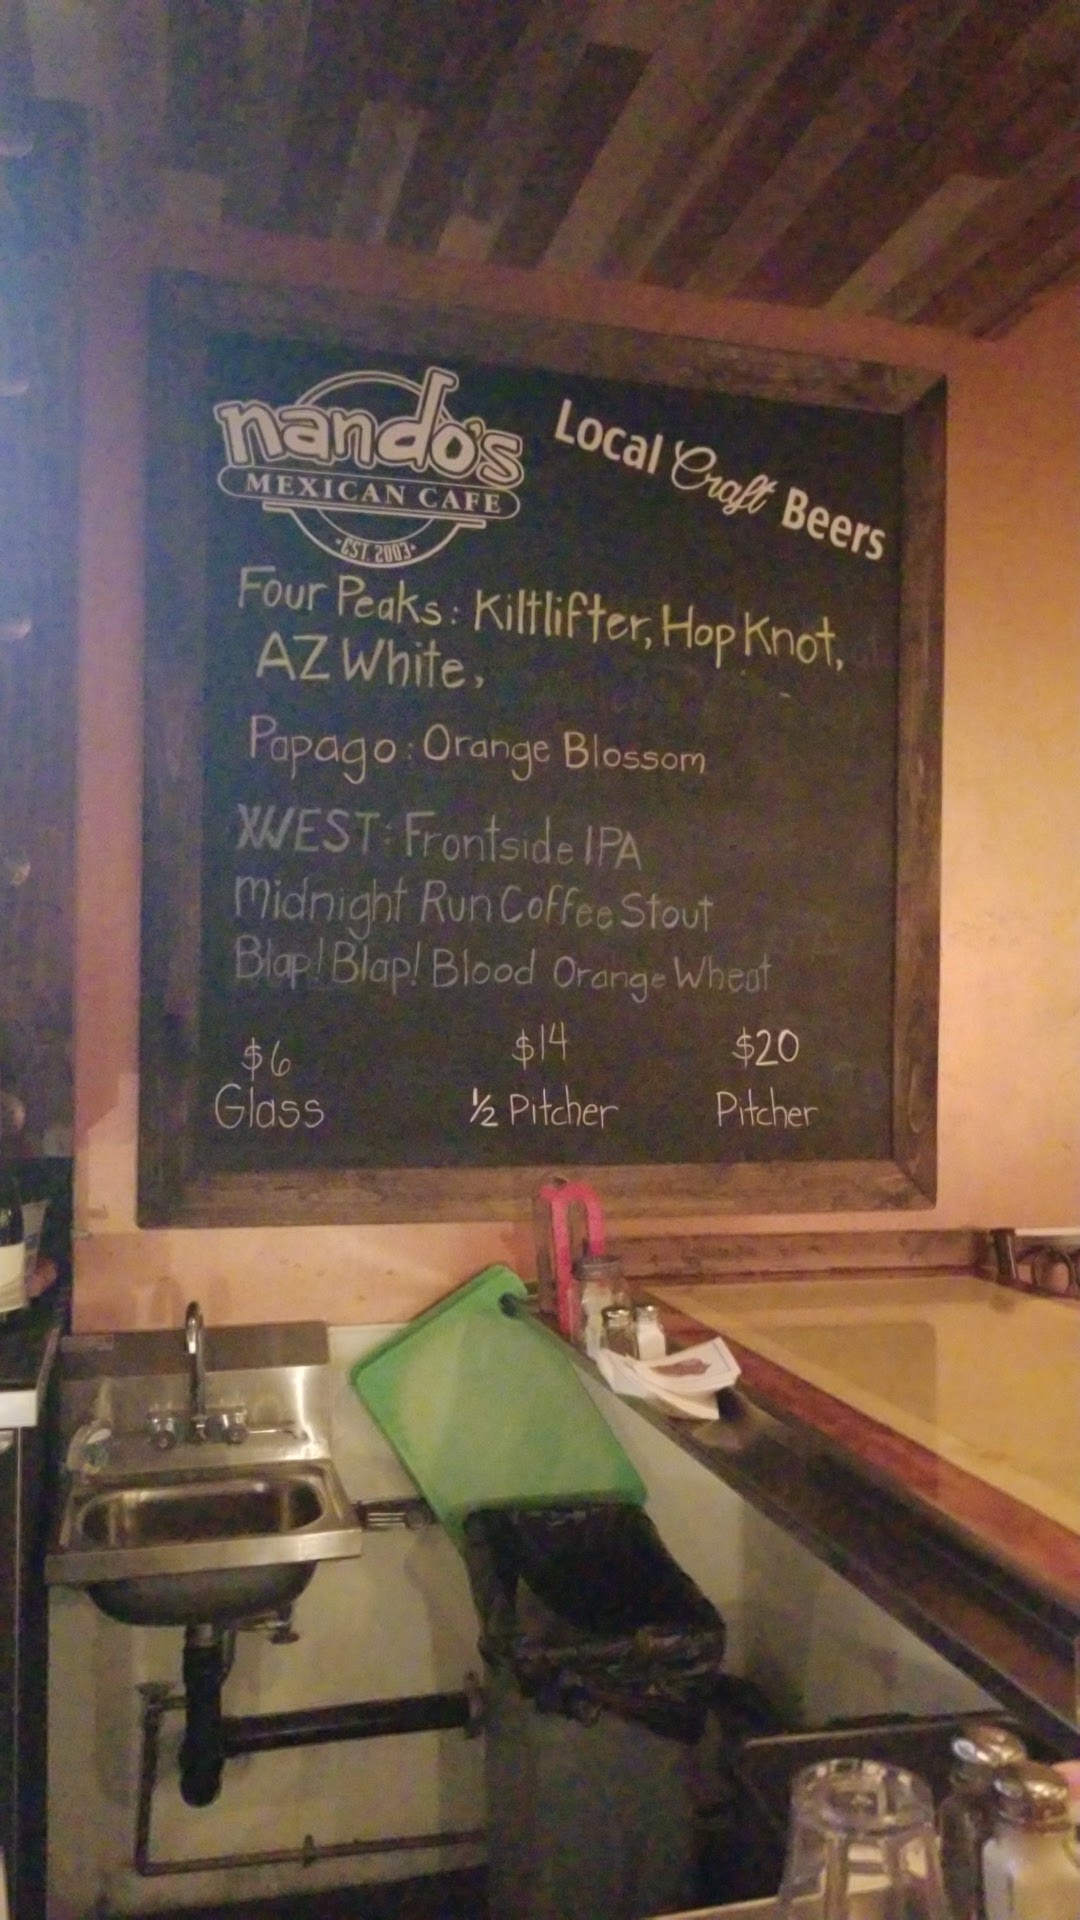 nando's
MEXICAN CAFE
•EST. 2003•
Local Craft Beers
Four Peaks: Kiltlifter, Hop Knot,
AZ White,
Papago: Orange Blossom
XWEST: Frontside IPA
Midnight Run Coffee Stout
Blap! Blap! Blood Orange Wheat
$6 $14 $20
Glass ½ Pitcher Pitcher